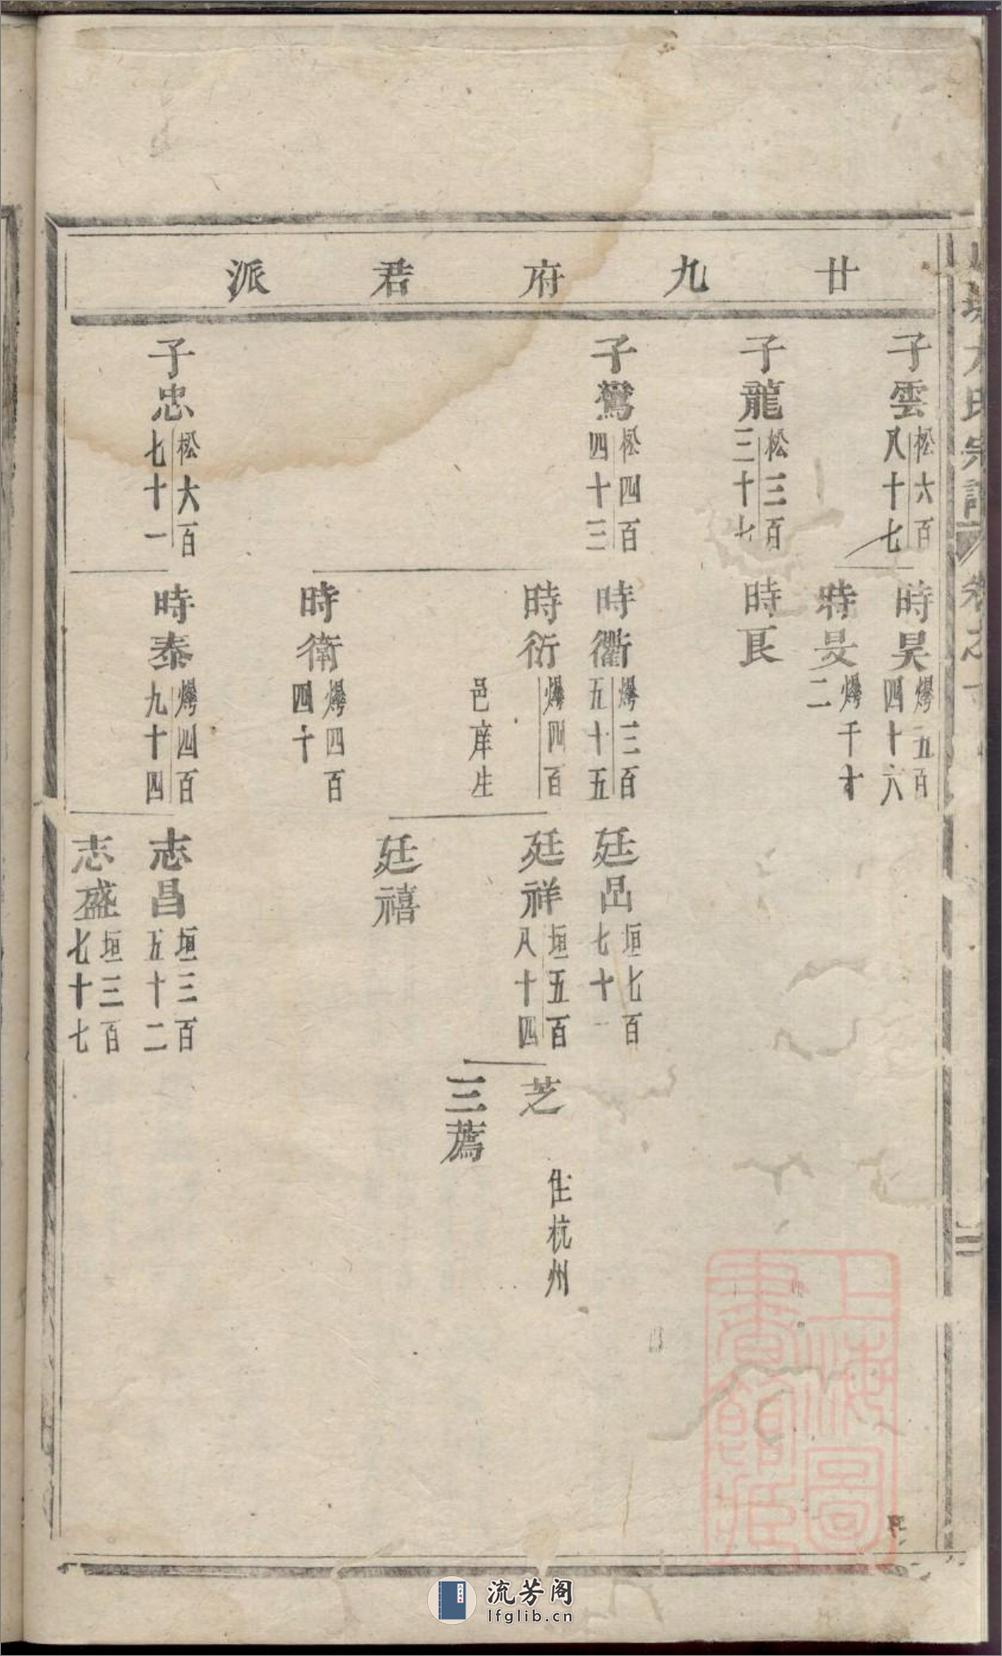 廿九府君派
子雲 松六百八十七
子龍 松三百三十七
子鸞 松四百四十三
子忠 松六百七十一
時昊 爆五百四十六
時旻 爆千十二
時良
時衢 爆三百五十五
時衍 爆四百 邑庠生
時衛 爆四百四十
時泰 爆四百九十四
廷喦 垣七百七十一
廷祥 垣五百八十四
廷禧
志昌 垣三百五十二
志盛 垣三百七十七
芝 住杭州
三薦
方氏宗譜 卷之十
上海圖書館藏
流芳阁
lfglib.cn